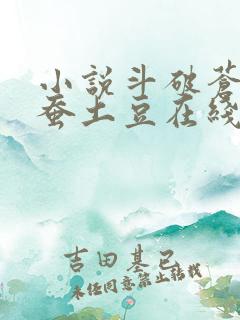 小說斗破蒼
蚕土豆在綫
吉田基已
未经同意禁止转载